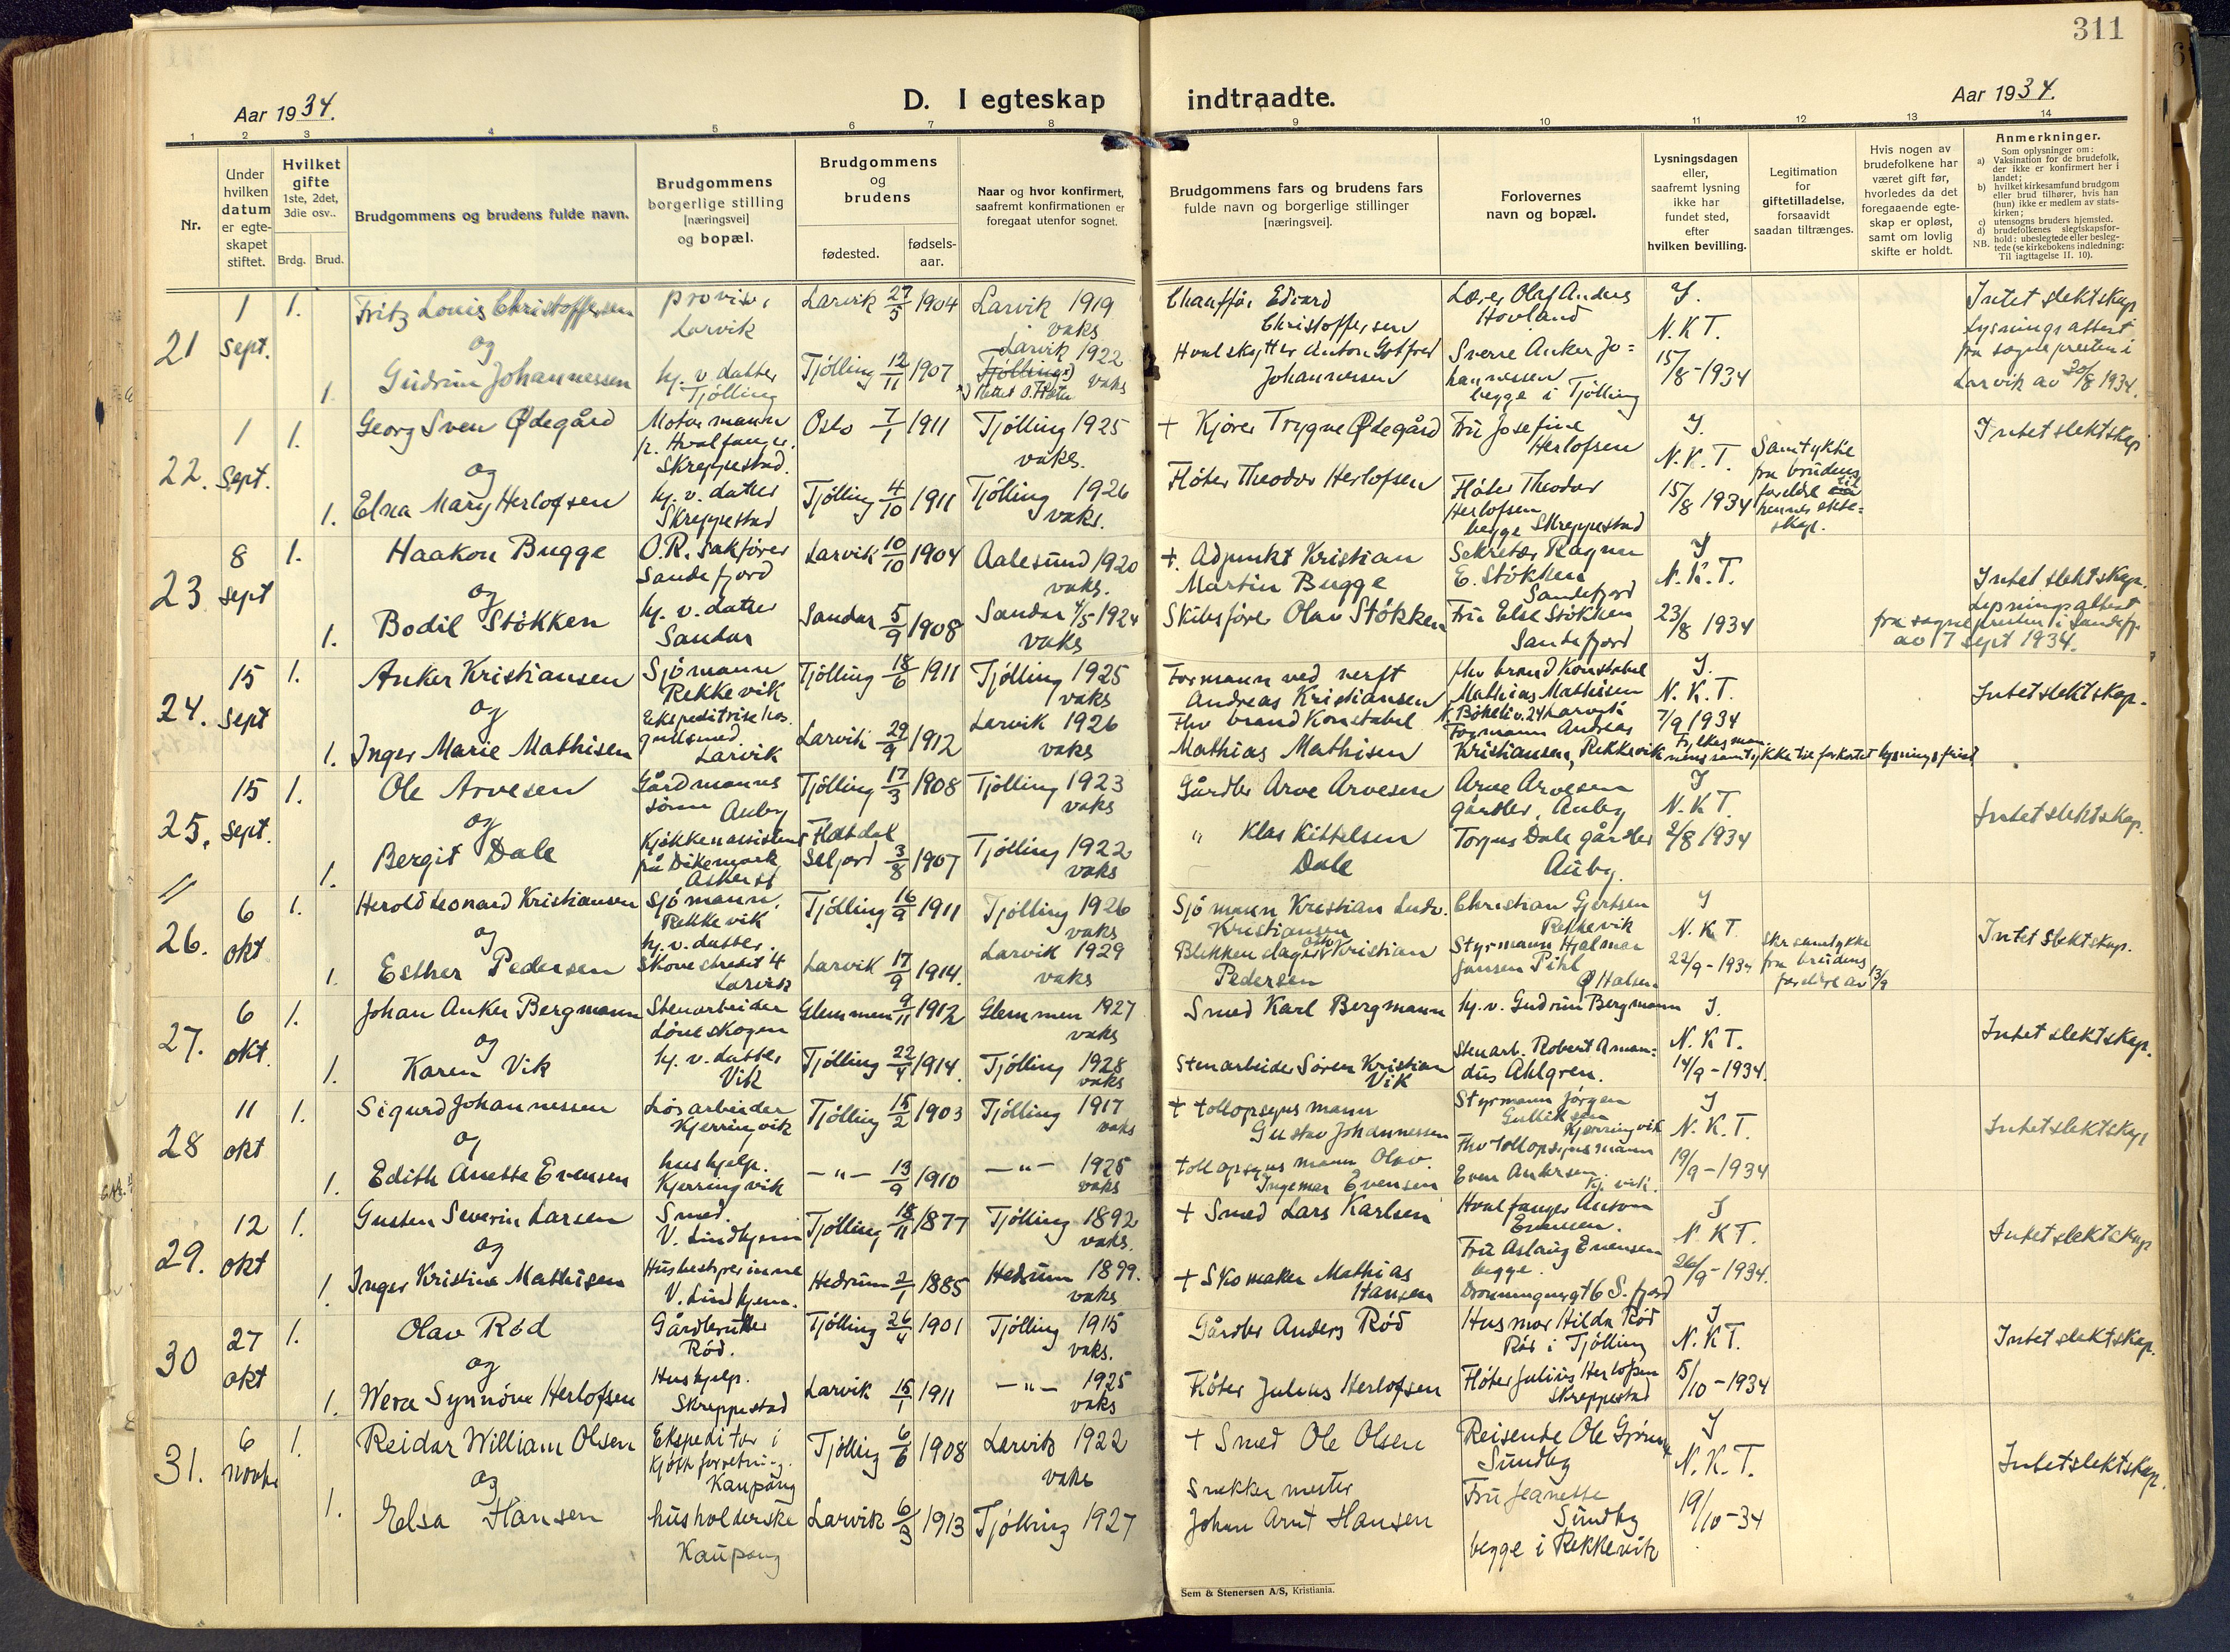 311
Aar 1934.
D. I egteskap indtraadte.
Aar 1934.
1 2 3 4 5 6 7 8 9 10 11 12 13 14
Nr.
Under hvilken datum er egteskapet stiftet.
Hvilket gifte 1ste, 2det, 3die osv..
Brdg. Brud.
Brudgommens og brudens fulde navn.
Brudgommens borgerlige stilling [næringsvei] og bopæl.
Brudgommens og brudens
fødested.
fødselsaar.
Naar og hvor konfirmert, saafremt konfirmationen er foregaat utenfor sognet.
Brudgommens fars og brudens fars fulde navn og borgerlige stillinger [næringsvei].
Forlovernes navn og bopæl.
Lysningsdagen eller, saafremt lysning ikke har fundet sted, efter hvilken bevilling.
Legitimation for giftetilladelse, forsaavidt saadan tiltrænges.
Hvis nogen av brudefolkene har været gift før, hvorledes da det foregaaende egteskap er opløst, samt om lovlig skifte er holdt.
Anmerkninger.
Som oplysninger om:
a) Vaksination for de brudefolk, der ikke er konfirmert her i landet;
b) hvilket kirkesamfund brudgom eller brud tilhører, hvis han (hun) ikke er medlem av statskirken;
c) utensogns bruders hjemsted.
d) brudefolkenes slegtskapsforhold: ubeslegtede eller beslegtede (se kirkebokens indledning: Til iagttagelse II. 10).
NB.
21
1 Sept.
1.
Fritz Louis Christoffersen
provisor
Larvik
Larvik 27/5 1904
Larvik 1919
vaks
Chauffør Edvard
Christoffersen
Lærer Olaf Anders
Hovland
J.
N.K.T.
15/8-1934
Intet slektskap
Lysningsattest
fra sognepresten i
Larvik av 30/8 1934.
og
1 Gudrun Johannessen
hj. v. datter
Tjølling
Tjølling 12/11 1907
Larvik 1922
Tjølling
vaks
Hvalskytter Anton Gotfred
Johannessen
Sverre Anker Jo=
hannessen
begge i Tjølling
22.
1 Sept.
1.
Georg Sven Ødegård
Motormann
p. Hvalfanger.
Skreppestad.
Oslo 7/1 1911
Tjølling 1925
vaks.
+ Kjører Trygve Ødegård
Fru Josefine
Herlofsen
J.
N.K.T.
15/8 1934
Samtykke
fra brudens
foreldre til
hennes ekte=
skap.
Intet slektskap
og
1. Elna Mary Herlofsen
hj. v. datter
Skreppestad
Tjølling 4/10 1911
Tjølling 1926
vaks.
Fløter Theodor Herlofsen
Fløter Theodor
Herlofsen
begge Skreppestad
23
8 sept
1.
Haakon Bugge
O.R. sakfører
Sandefjord
Larvik 10/10 1904
Aalesund 1920
vaks.
+ Adjunkt Kristian
Martin Bugge
Sekretær Ragnar
E. Støkken
Sandefjord
J
N.K.T.
23/8 1934
Intet slektskap.
Lysningsattest
fra sognepresten i Sandefj.
av 17 sept 1934.
og
1. Bodil Støkken
hj. v. datter
Sandar
Sandar 5/9 1908
Sandar 4/5 1924
vaks
Skibsfører Olav Støkken
Fru Else Støkken
Sandefjord
24.
15 Sept
1.
Anker Kristiansen
Sjømann
Rekkevik
Tjølling 18/6 1911
Tjølling 1925
vaks
Formann ved verft
Andreas Kristiansen
fhv brandkonstabel
Mathias Mathisen
N. Bøkeliv. 24 Larvik
J.
N.K.T.
7/9 1934
Intet slektskap.
og
1. Inger Marie Mathisen
Ekspeditrise hos
gullsmed
Larvik
Larvik 29/9 1912
Larvik 1926
vaks
Fhv brandkonstabel
Mathias Mathisen
Formann Andreas
Kristiansen, Rekkevik
Fylkesman
nens samtykke til forkortet lysningsfrist
25.
15 Sept.
1.
Ole Arvesen
Gårdmanns
sønn Auby
Tjølling 17/3 1908
Tjølling 1923
vaks
Gårdbr Arve Arvesen
Arve Arvesen
gårdbr. Auby
J
N.K.T.
2/8 1934
Intet slektskap.
og
1. Bergit Dale
Kjøkkenassistent
på Dikemark
Asker st
Flatdal
Seljord 3/8 1907
Tjølling 1922
vaks
" Klas Kittelsen
Dale
Torjus Dale gårdbr
Auby.
26.
6 okt
1.
Herold Leonard Kristiansen
Sjømann.
Rekkevik
Tjølling 16/9 1911
Tjølling 1926
vaks
Sjømann Kristian Ludv.
Kristiansen
Christian Gjertsen
Rekkevik
J
N.K.T.
22/9-1934
Skr samtykke
fra brudens
foreldre av 13/9
Intet slektskap.
og
1. Esther Pedersen
hj. v. datter.
Skovestredet 4
Larvik
Larvik 17/9 1914.
Larvik 1929
vaks
Blikkenslager Kristian
Pedersen
Styrmann Hjalmar
Jansen Pihl
Ø Halsen
27.
6 okt.
1.
Johan Anker Bergmann
Stenarbeider
Løveskogen
Glemmen 9/11 1912
Glemmen 1927
vaks
Smed Karl Bergmann
hj. v. Gudrun Bergmann
J.
N.K.T.
14/9-1934.
Intet slektskap.
og
1. Karen Vik
hj. v. datter
Vik
Tjølling 22/4 1914.
Tjølling 1928
vaks
Stenarbeider Søren Kristian
Vik
Stenarb. Robert Aman=
dus Ahlgren.
28
11 okt
1.
Sigurd Johannessen
Løsarbeider
Kjerringvik
Tjølling 15/2 1903
Tjølling 1917
vaks
+ tollopsynsmann
Gustav Johannessen
Styrmann Jørgen
Gulliksen
Kjerringvik
J
N.K.T.
19/9-1934
Intet slektskap
og
1. Edith Anette Evensen
hushjelp.
Kjerringvik
—"— 13/9 1910
—"— 1925
vaks
tollopsynsmann Olav.
Ingemar Evensen
Fhv tollopsynsmann
Even Andersen
Kj. vik.
29.
12 okt
1.
Gusten Severin Larsen
Smed.
V. Lindhjem
Tjølling 18/11 1877
Tjølling 1892
vaks.
+ Smed Lars Karlsen
Hvalfanger Anton
Evensen.
J
N.K.T.
26/9-1934.
Intet slektskap
og
1. Inger Kristine Mathisen
Husbestyrerinne
V. Lindhjem.
Hedrum 2/1 1885
Hedrum 1899.
vaks
+ Skomaker Mathias
Hansen
Fru Aslaug Evensen
begge.
Dronningensgt 6 S. fjord
30
27 okt
1.
Olav Rød
Gårdbruker
Rød.
Tjølling 26/4 1901
Tjølling 1915
vaks.
Gårdbr Anders Rød
Husmor Hilda Rød
Rød i Tjølling
J
N.K.T.
5/10-1934
Intet slektskap.
og
1. Wera Synnøve Herlofsen
Hushjelp.
Skreppestad
Larvik 15/1 1911
—"— 1925
vaks
Fløter Julius Herlofsen
Fløter Julius Herlofsen
Skreppestad
31.
6 novbr
1.
Reidar William Olsen
Ekspeditør i
kjøttforretning.
Kaupang
Tjølling 6/6 1908
Larvik 1922
vaks
+ Smed Ole Olsen
Reisende Ole
Sundby
J
N.K.T.
19/10-34
Intet slektskap.
og
1. Elsa Hansen
husholderske
Kaupang
Larvik 6/3 1913
Tjølling 1927
Snekkermester
Johan Arnt Hansen
Fru Jeanette
Sundby
begge i Rekkevik
Sem & Stenersen A/S, Kristiania.